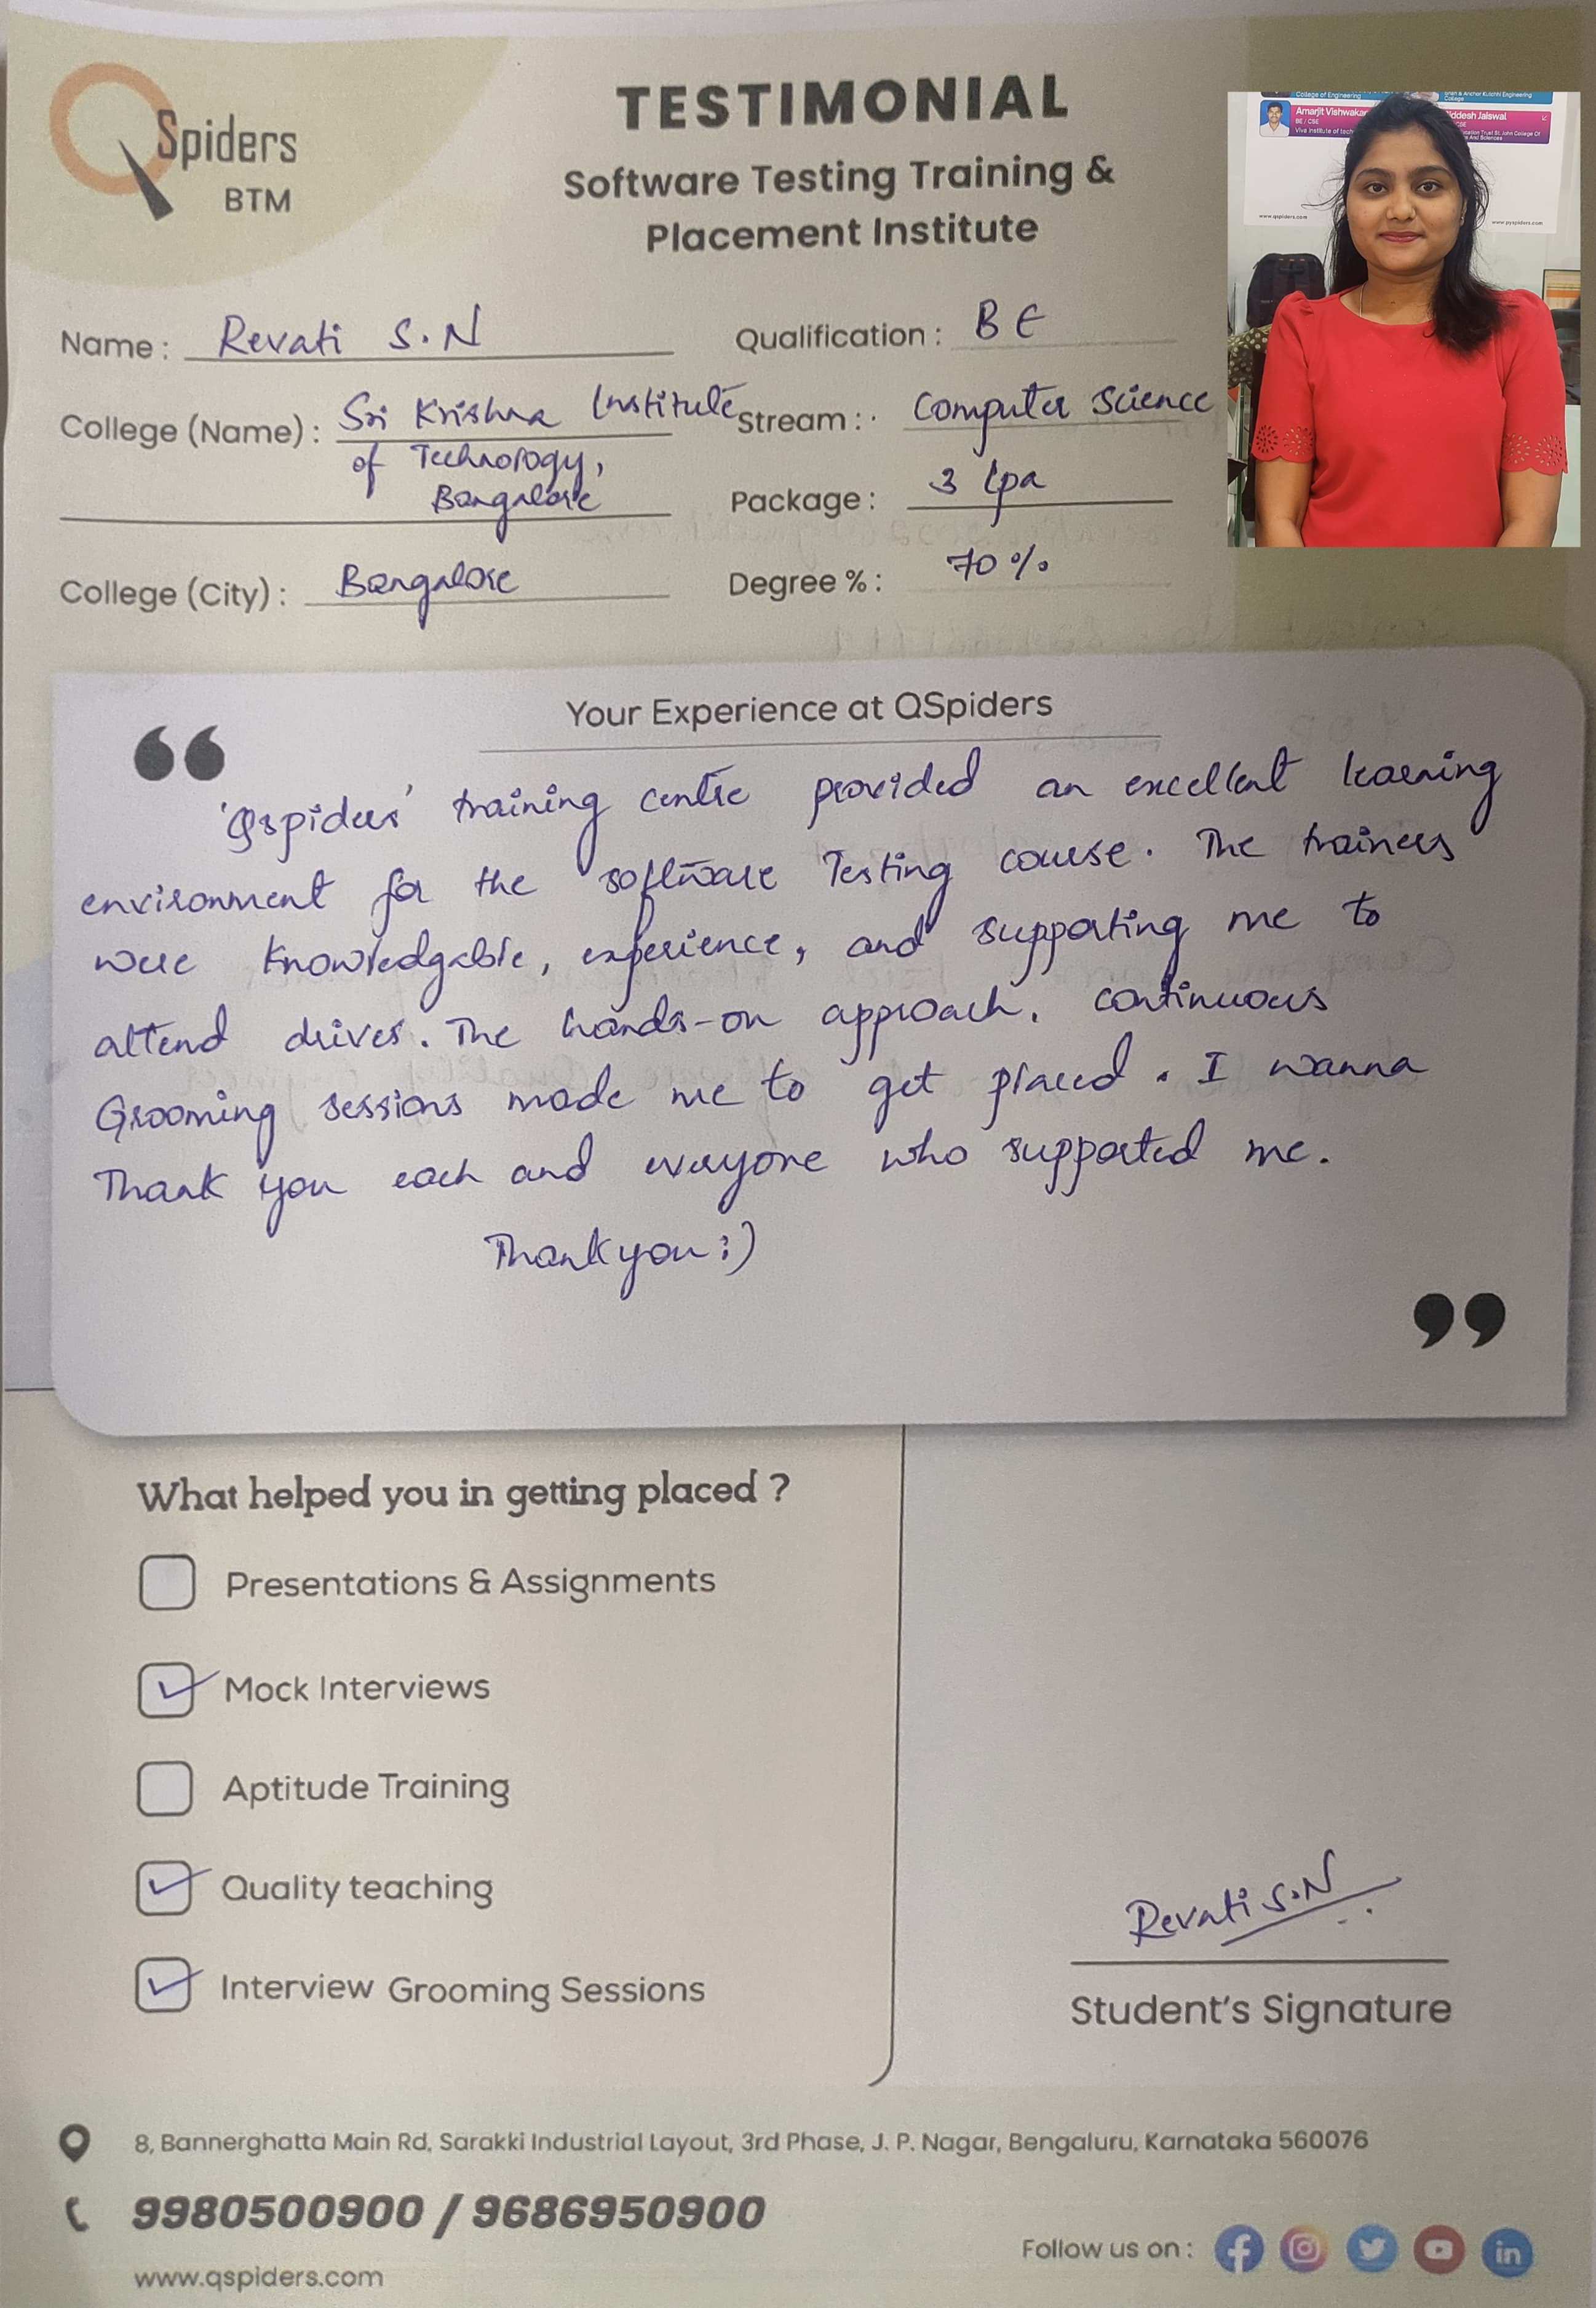 QSpiders
BTM
TESTIMONIAL
Software Testing Training &
Placement Institute
College of Engineering
Shah & Anchor Kutchhi Engineering
College
Amarjit Vishwakar
BE / CSE
Viva Institute of tech
iddesh Jaiswal
CSE
cation Trust St. John College Of
And Sciences
www.qspiders.com
www.pyspiders.com
Name : Revati S.N
Qualification : BE
College (Name) : Sri Krishna Institute
of Technology,
Bangalore
Stream : Computer Science
Package : 3 lpa
College (City) : Bangalore
Degree % : 70 %
Your Experience at QSpiders
“
'Qspiders' training centre provided an excellent learning
environment for the software Testing course. The trainers
were knowledgable, experience, and supporting me to
attend drives. The hands-on approach, continuous
Grooming sessions made me to get placed. I wanna
Thank you each and everyone who supported me.
Thank you :)
”
What helped you in getting placed ?
Presentations & Assignments
Mock Interviews
Aptitude Training
Quality teaching
Interview Grooming Sessions
Revati S.N
Student's Signature
8, Bannerghatta Main Rd, Sarakki Industrial Layout, 3rd Phase, J. P. Nagar, Bengaluru, Karnataka 560076
9980500900 / 9686950900
www.qspiders.com
Follow us on :